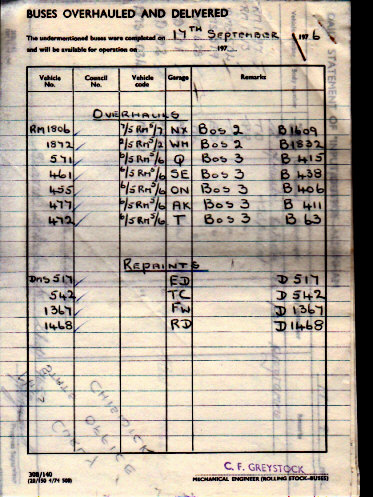 BUSES OVERHAULED AND DELIVERED
The undermentioned buses were completed on 17TH September 1976
and will be available for operation on 197
Vehicle No. Council No. Vehicle code Garage Remarks
OVERHAULS
RM1806 7/5RM5/7 NX Bos 2 B1609
1872 2/5RM5/2 WM Bos 2 B1832
571 6/5RM5/6 Q Bos 3 B415
461 6/5RM5/6 SE Bos 3 B438
455 6/5RM5/6 ON Bos 3 B406
477 6/5RM5/6 AK Bos 3 B411
472 6/5RM5/6 T Bos 3 B63
REPAINTS
DMS517 ED D517
542 TC D542
1367 FW D1367
1468 RD D1468
CHISWICK
OFFICE
C. F. GREYSTOCK
308/140
MECHANICAL ENGINEER (ROLLING STOCK-BUSES)